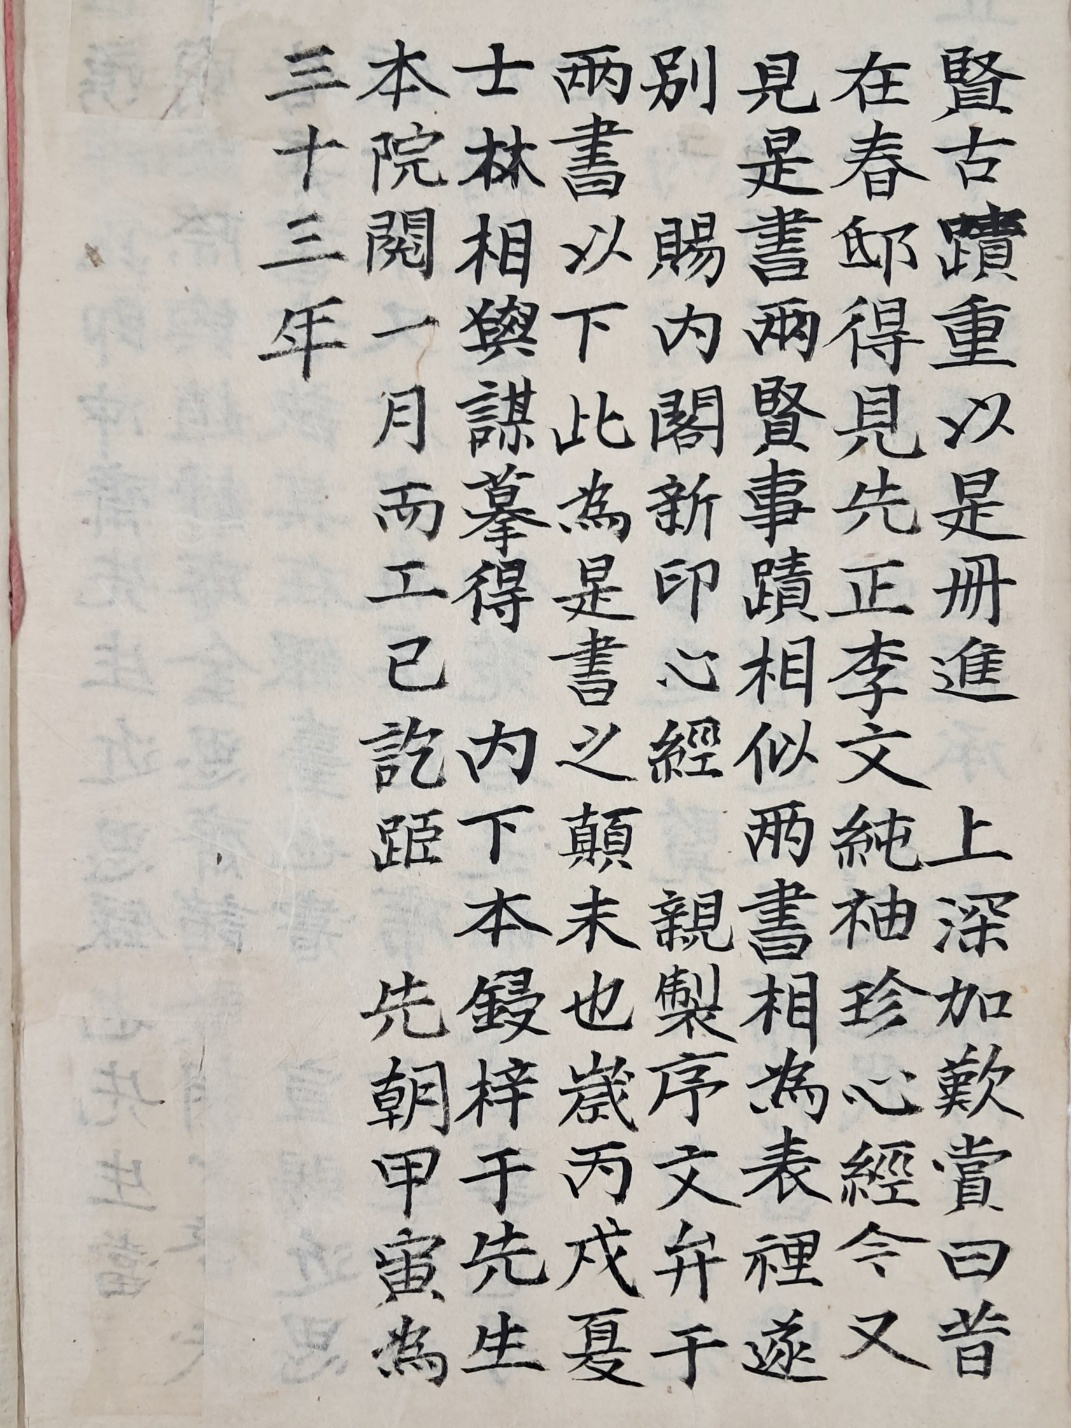 賢古蹟重以是冊進　上深加歎賞曰昔
在春邸得見先正李文純袖珍心經今又
見是書兩賢事蹟相似兩書相為表裡遂
別　賜内閣新印心經　親製序文弁于
兩書以下此為是書之顛末也歲丙戌夏
士林相與謀摹得　内下本鋟梓于先生
本院閱一月而工已訖距　先朝甲寅為
三十三年